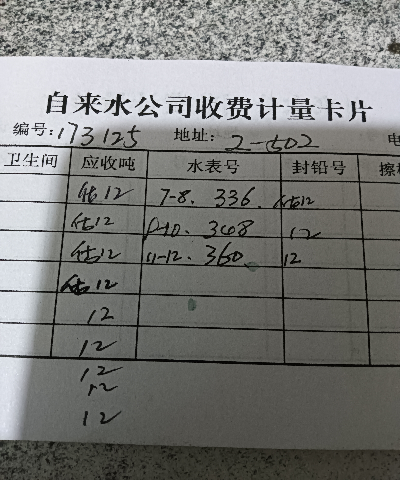 自来水公司收费计量卡片
编号:173125 地址: 2-502 电
卫生间 应收吨 水表号 封铅号 擦
估12 7-8. 336. 估12
9-10. 348 12
估12 11-12. 360 12
估12
12
12
12
12
12